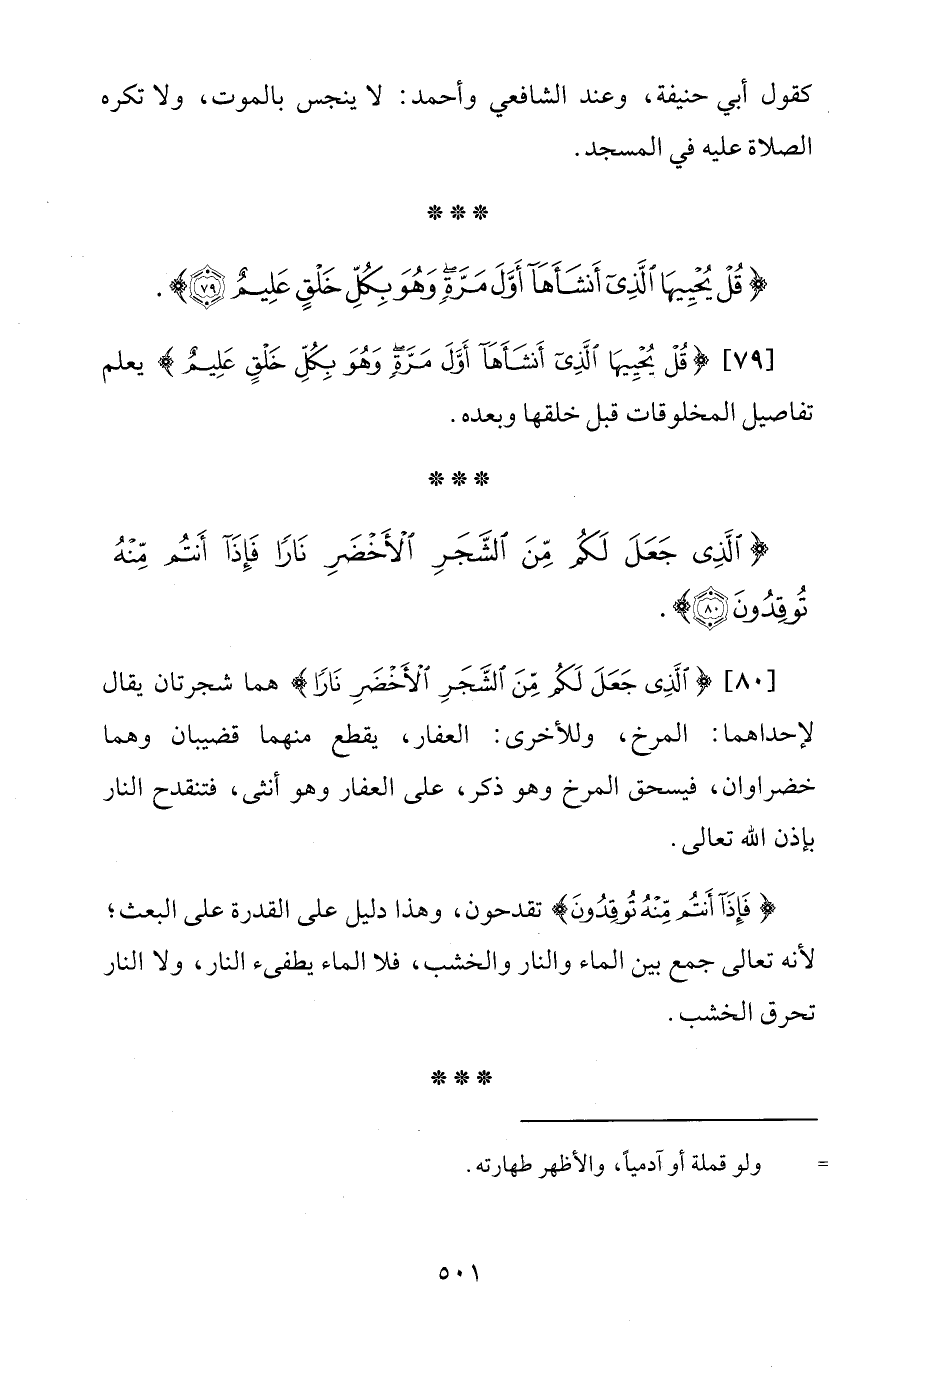 كقول أبي حنيفة، وعند الشافعي وأحمد: لا ينجس بالموت، ولا تكره
الصلاة عليه في المسجد.
* * *
﴿ قُلْ يُحْيِيهَا ٱلَّذِىٓ أَنشَأَهَآ أَوَّلَ مَرَّةٍۖ وَهُوَ بِكُلِّ خَلْقٍ عَلِيمٌ ۝٧٩﴾.
[٧٩] ﴿ قُلْ يُحْيِيهَا ٱلَّذِىٓ أَنشَأَهَآ أَوَّلَ مَرَّةٍۖ وَهُوَ بِكُلِّ خَلْقٍ عَلِيمٌ ﴾ يعلم
تفاصيل المخلوقات قبل خلقها وبعده.
* * *
﴿ ٱلَّذِى جَعَلَ لَكُم مِّنَ ٱلشَّجَرِ ٱلْأَخْضَرِ نَارًا فَإِذَآ أَنتُم مِّنْهُ
تُوقِدُونَ ۝٨٠﴾.
[٨٠] ﴿ ٱلَّذِى جَعَلَ لَكُم مِّنَ ٱلشَّجَرِ ٱلْأَخْضَرِ نَارًا﴾ هما شجرتان يقال
لإحداهما: المرخ، وللأخرى: العفار، يقطع منهما قضيبان وهما
خضراوان، فيسحق المرخ وهو ذكر، على العفار وهو أنثى، فتنقدح النار
بإذن الله تعالى.
﴿ فَإِذَآ أَنتُم مِّنْهُ تُوقِدُونَ﴾ تقدحون، وهذا دليل على القدرة على البعث؛
لأنه تعالى جمع بين الماء والنار والخشب، فلا الماء يطفىء النار، ولا النار
تحرق الخشب.
* * *
= ولو قملة أو آدمياً، والأظهر طهارته.
٥٠١